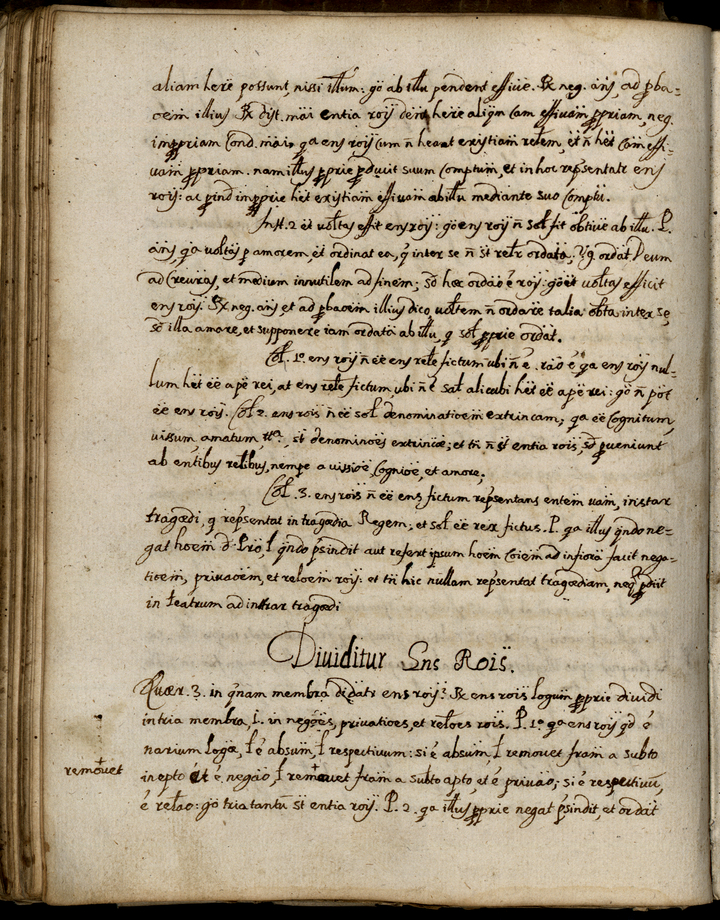 aliam herē possunt, nissi illum: gō ab illu pendent effiuē. R neg. āñs, ad pba=
oem illius R dist. mai entia roīs dēng herē aliqm cam effiuam ppriam, neg.
impriam Cond. mai, qa ens roīs cum n̄ heant existiam relem, et n̄ hēt Cam effi=
uam ppriam. nam illus pprie pducit suum Comptum, et in hoc repsentatr ens
roīs: ac pind impprie hēt existiam effiuam ab illu mediante suo Comptu.
Inst. 2 ēt voltas effit ens roīs: gō ens roīs n̄ sol fit obtiuē ab illu. P.
āñs, qa voltas p amorem, ēt ordinat ea, q inter se n̄ st relr ordata. Vg. ordat Deum
ad Creuras, et medium innutilem ad finem; sō hæc ordāo ē roīs: gō ēt voltas efficit
ens roīs. R neg. āñs et ad pbaoem illius dico, voltem n̄ ordare talia obta inter se,
sō illa amare, et supponere iam ordata ab illu, q sol pprie ordat.
Col. 1ᵒ. ens roīs n̄ ēē ens rele fictum, ubi n̄ ē. rāo ē qa ens roīs nul=
lum hēt ēē a pē rei, at ens rele fictum, ubi n̄ ē sal alicubi hēt ēē a pē rei: gō n̄ pot
ēē ens roīs. Col 2. ens roīs n̄ ēē sol denominatioem extrincam; qa ēē Cognitum,
vissum amatum tt.ᵃ st denominoēs extrincæ; et tn̄ n̄ st entia roīs, sō pueniunt
ab entibus relibus, nempe a vissioē, Cognioē, et amore.
Col. 3. ens roīs n̄ ēē ens fictum repsentans entem uam, instar
tragædi, q repsentat in tragædia Regem; et sol ēē rex fictus. P. qa illus qndo ne=
gat hoem d Pro, l qndo psindit aut refert ipsum hoem Coiem ad infiora facit nega=
tioem, privaoem, et reloem roīs: et tn̄ hic nullam repsentat tragædiam, neq pdiit
in teatrum ad instar tragædi
Diuiditur Ens Roīs.
Quær. 3. in qnam membra didatr ens roīs? R ens roīs logum pprie diuidi
in tria membra, 1. in negoēs, privatioēs, et reloēs roīs. P. 1ᵒ qa ens roīs qd ē
narium Logæ, l ē absum, l respectivum: si ē absum, l remouet fram a subto
inepto et ē, negāo, l remouet fram a subto apto, et ē privāo; si ē respectiuū,
remouet
ē relāo: gō tria tantū st entia roīs. P. 2. qa illus pprie negat psindit, et ordat